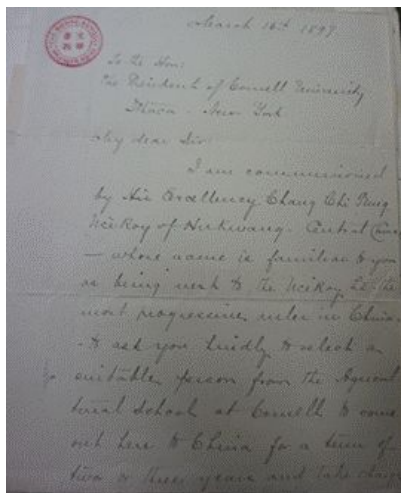 March 16th 1897
To the Hon:
the President of Cornell University
Ithaca - New York
My dear Sir
I am commissioned
by His Excellency Chang Chi Tung
Viceroy of Hukwang - Central China
- whose name is familiar to you
as being next to the Viceroy Li, the
most progressive ruler in China -
- to ask you kindly to select a
suitable person from the Agricul
tural School at Cornell to come
out here to China for a term of
two or three years and take charge